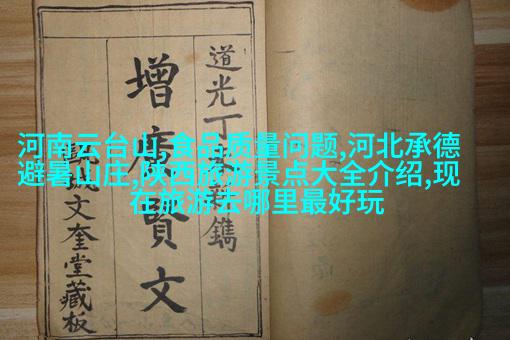 河南云台山,食品质量问题,河北承德
避暑山庄,陕西旅游景点大全介绍,现
在旅游去哪里最好玩
道光丁新鐫
增廣賢文
文奎堂藏板